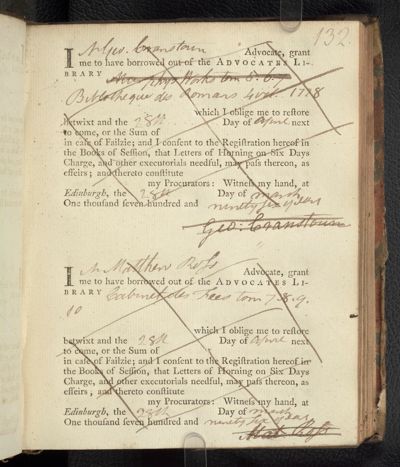 132.
I Mr Geo. Cranstoun Advocate, grant
me to have borrowed out of the ADVOCATES LI-
BRARY Works tom 5. 6.
Bibliotheque des Romans 4 vols 1778
which I oblige me to reſtore
betwixt and the 28th Day of April next
to come, or the Sum of
in caſe of Failzie; and I conſent to the Regiſtration hereof in
the Books of Seſſion, that Letters of Horning on Six Days
Charge, and other executorials needful, may paſs thereon, as
effeirs; and thereto conſtitute
my Procurators: Witneſs my hand, at
Edinburgh, the 28th Day of March
One thouſand ſeven hundred and ninety six years
Geo: Cranstoun
I Mr Matthew Roſs Advocate, grant
me to have borrowed out of the ADVOCATES LI-
BRARY Cabinet des Fees tom 7. 8. 9.
10
which I oblige me to reſtore
betwixt and the 28th Day of April next
to come, or the Sum of
in caſe of Failzie; and I conſent to the Regiſtration hereof in
the Books of Seſſion, that Letters of Horning on Six Days
Charge, and other executorials needful, may paſs thereon, as
effeirs; and thereto conſtitute
my Procurators: Witneſs my hand, at
Edinburgh, the 28th Day of March
One thouſand ſeven hundred and ninety six years
Mat: Roſs